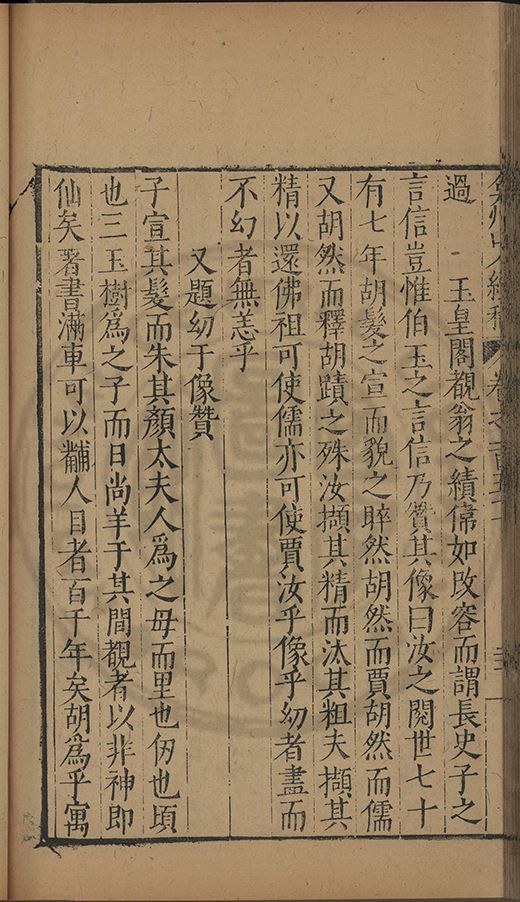 過　玉皇閣覩翁之績俻如改容而謂長史子之
言信豈惟伯玉之言信乃贊其像曰汝之閱世七十
有七年胡髮之宣而貌之睟然胡然而賈胡然而儒
又胡然而釋胡蹟之殊汝擷其精而汰其粗夫擷其
精以還佛祖可使儒亦可使賈汝乎像乎㓜者盡而
不幻者無恙乎
又題㓜于像贊
子宣其髮而朱其顏太夫人爲之母而里也仂也頃
也三玉樹爲之子而日尚羊于其間覩者以非神即
仙矣著書滿車可以黼人目者百千年矣胡爲乎寓